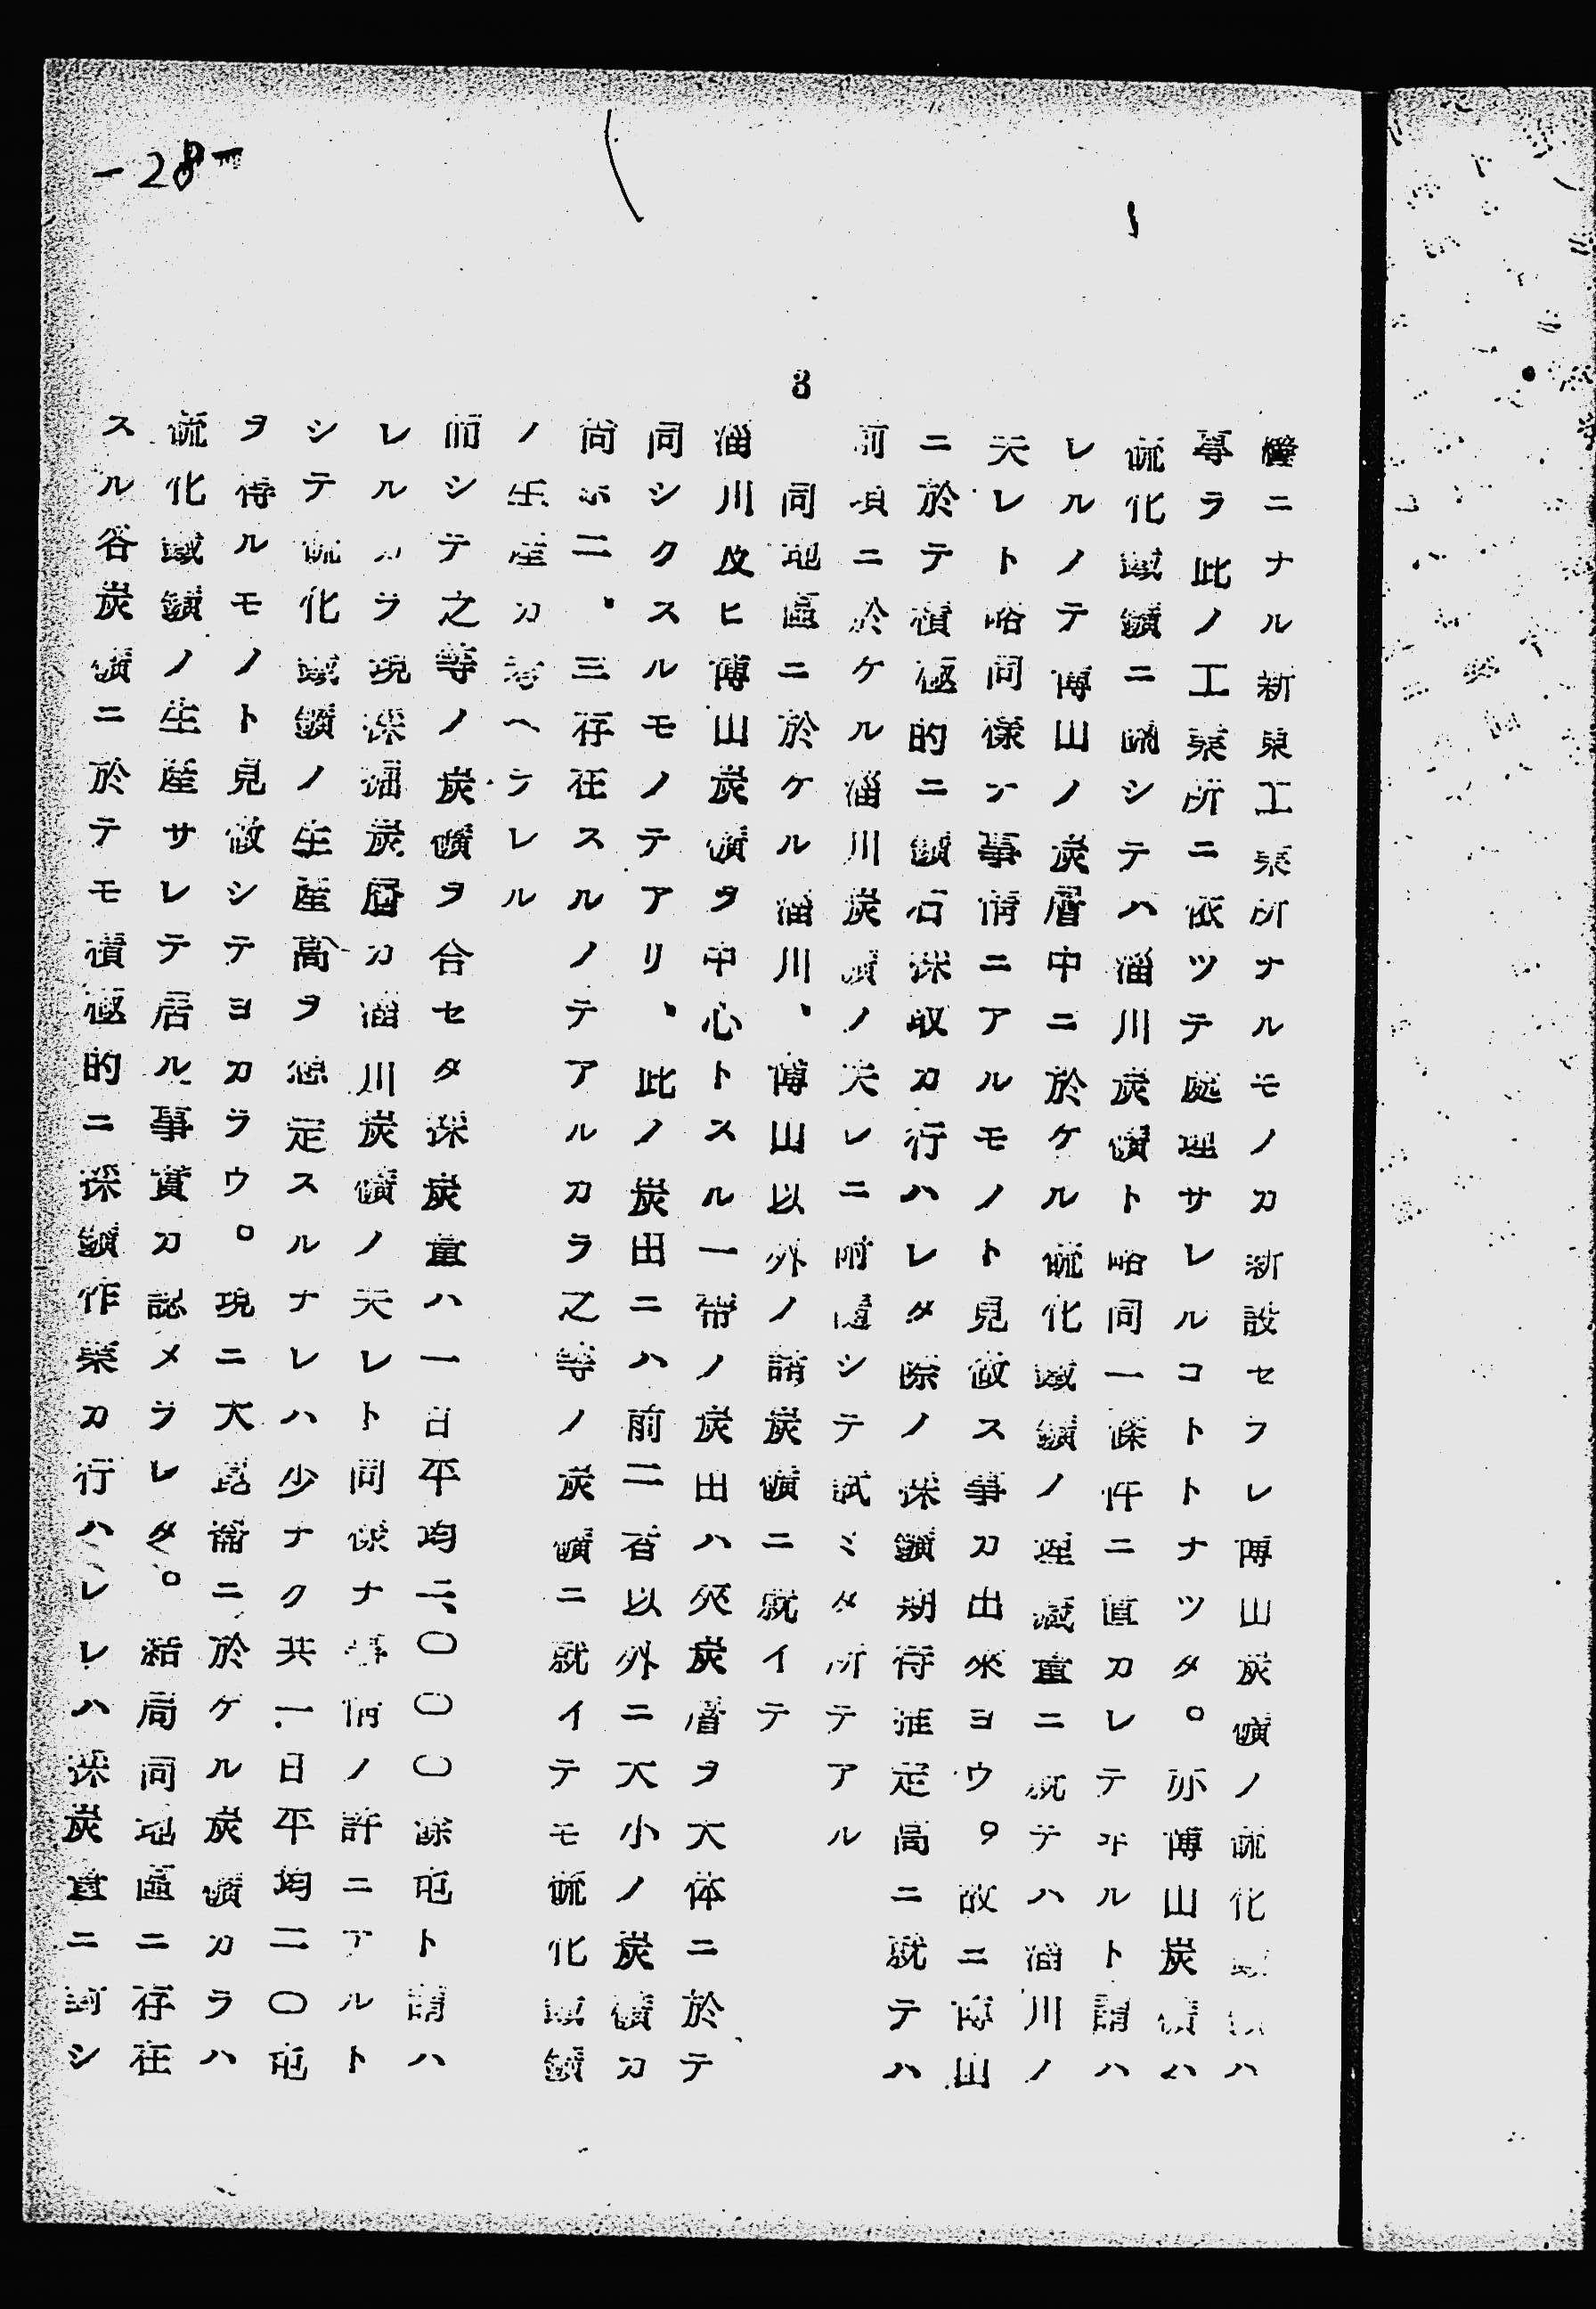 -28-
3
ニナル新泉工業所ナルモノカ新設セラレ博山炭礦ノ硫化鐵鑛ハ
等ヲ此ノ工業所ニ依ツテ處理サレルコトトナツタ。亦博山炭礦ハ
硫化鐵鑛ニ關シテハ淄川炭礦ト略同一條件ニ置カレテヰルト謂ハ
レルノテ博山ノ炭層中ニ於ケル硫化鐵鑛ノ埋藏量ニ就テハ淄川ノ
夫レト略同樣ナ事情ニアルモノト見做ス事カ出來ヨウ。故ニ博山
ニ於テ積極的ニ鑛石採取カ行ハレタ際ノ採鑛期待推定高ニ就テハ
前項ニ於ケル淄川炭礦ノ夫レニ附隨シテ試ミタ所テアル
同地區ニ於ケル淄川、博山以外ノ諸炭礦ニ就イテ
淄川及ヒ博山炭礦ヲ中心トスル一帶ノ炭田ハ夾炭層ヲ大体ニ於テ
同シクスルモノテアリ、此ノ炭田ニハ前二者以外ニ大小ノ炭礦カ
尚ホ二、三存在スルノテアルカラ之等ノ炭礦ニ就イテモ硫化鐵鑛
ノ生産カ考ヘラレル
而シテ之等ノ炭礦ヲ合セタ採炭量ハ一日平均二、〇〇〇餘屯ト謂ハ
レルカラ現採掘炭層カ淄川炭礦ノ夫レト同樣ナ事情ノ許ニアルト
シテ硫化鐵鑛ノ生産高ヲ想定スルナレハ少ナク共一日平均二〇屯
ヲ得ルモノト見做シテヨカラウ。現ニ大崑崙ニ於ケル炭礦カラハ
硫化鐵鑛ノ生産サレテ居ル事實カ認メラレタ。結局同地區ニ存在
スル各炭礦ニ於テモ積極的ニ採鑛作業カ行ハレレハ採炭量ニ對シ